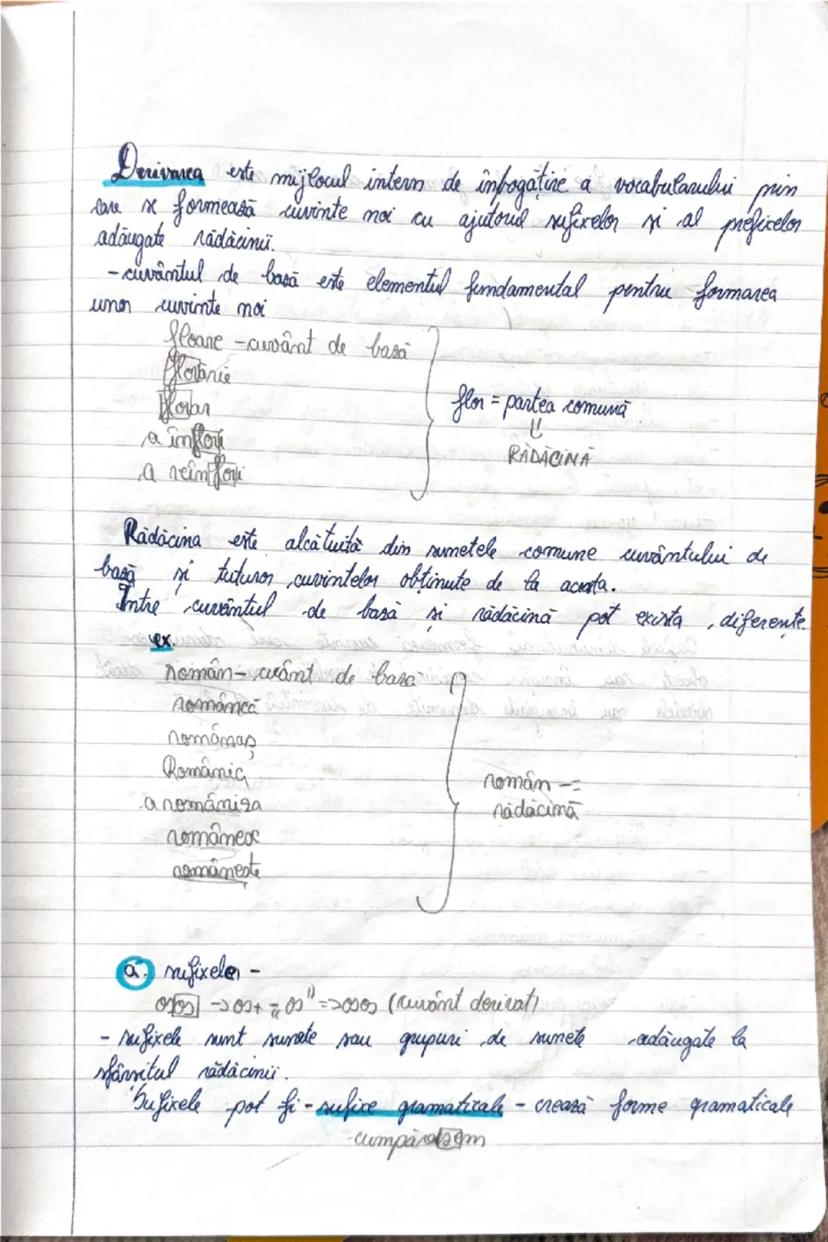 Derivarea este mijlocul intern de îmbogățire a vocabularului prin
care se formează cuvinte noi cu ajutorul sufixelor și al prefixelor
adăugate rădăcinii.
- cuvântul de bază este elementul fundamental pentru formarea
unor cuvinte noi
floare - cuvânt de bază
florărie
florar
a înflori
a reînflori
flor = partea comună
⇓
RĂDĂCINĂ
Rădăcina este alcătuită din sunetele comune cuvântului de
bază și tuturor cuvintelor obținute de la acesta.
Între cuvântul de bază și rădăcină pot exista diferențe.
ex.
român - cuânt de baza
româncă
românaș
Românic
a româniza
românesc
românește
român - =
rădăcină
a. sufixele -
osos -> os + „os" => osos (cuvânt derivat)
- sufixele sunt sunete sau grupuri de sunete adăugate la
sfârșitul rădăcinii.
Sufixele pot fi - sufixe gramaticale - crează forme gramaticale
- cumpărasem